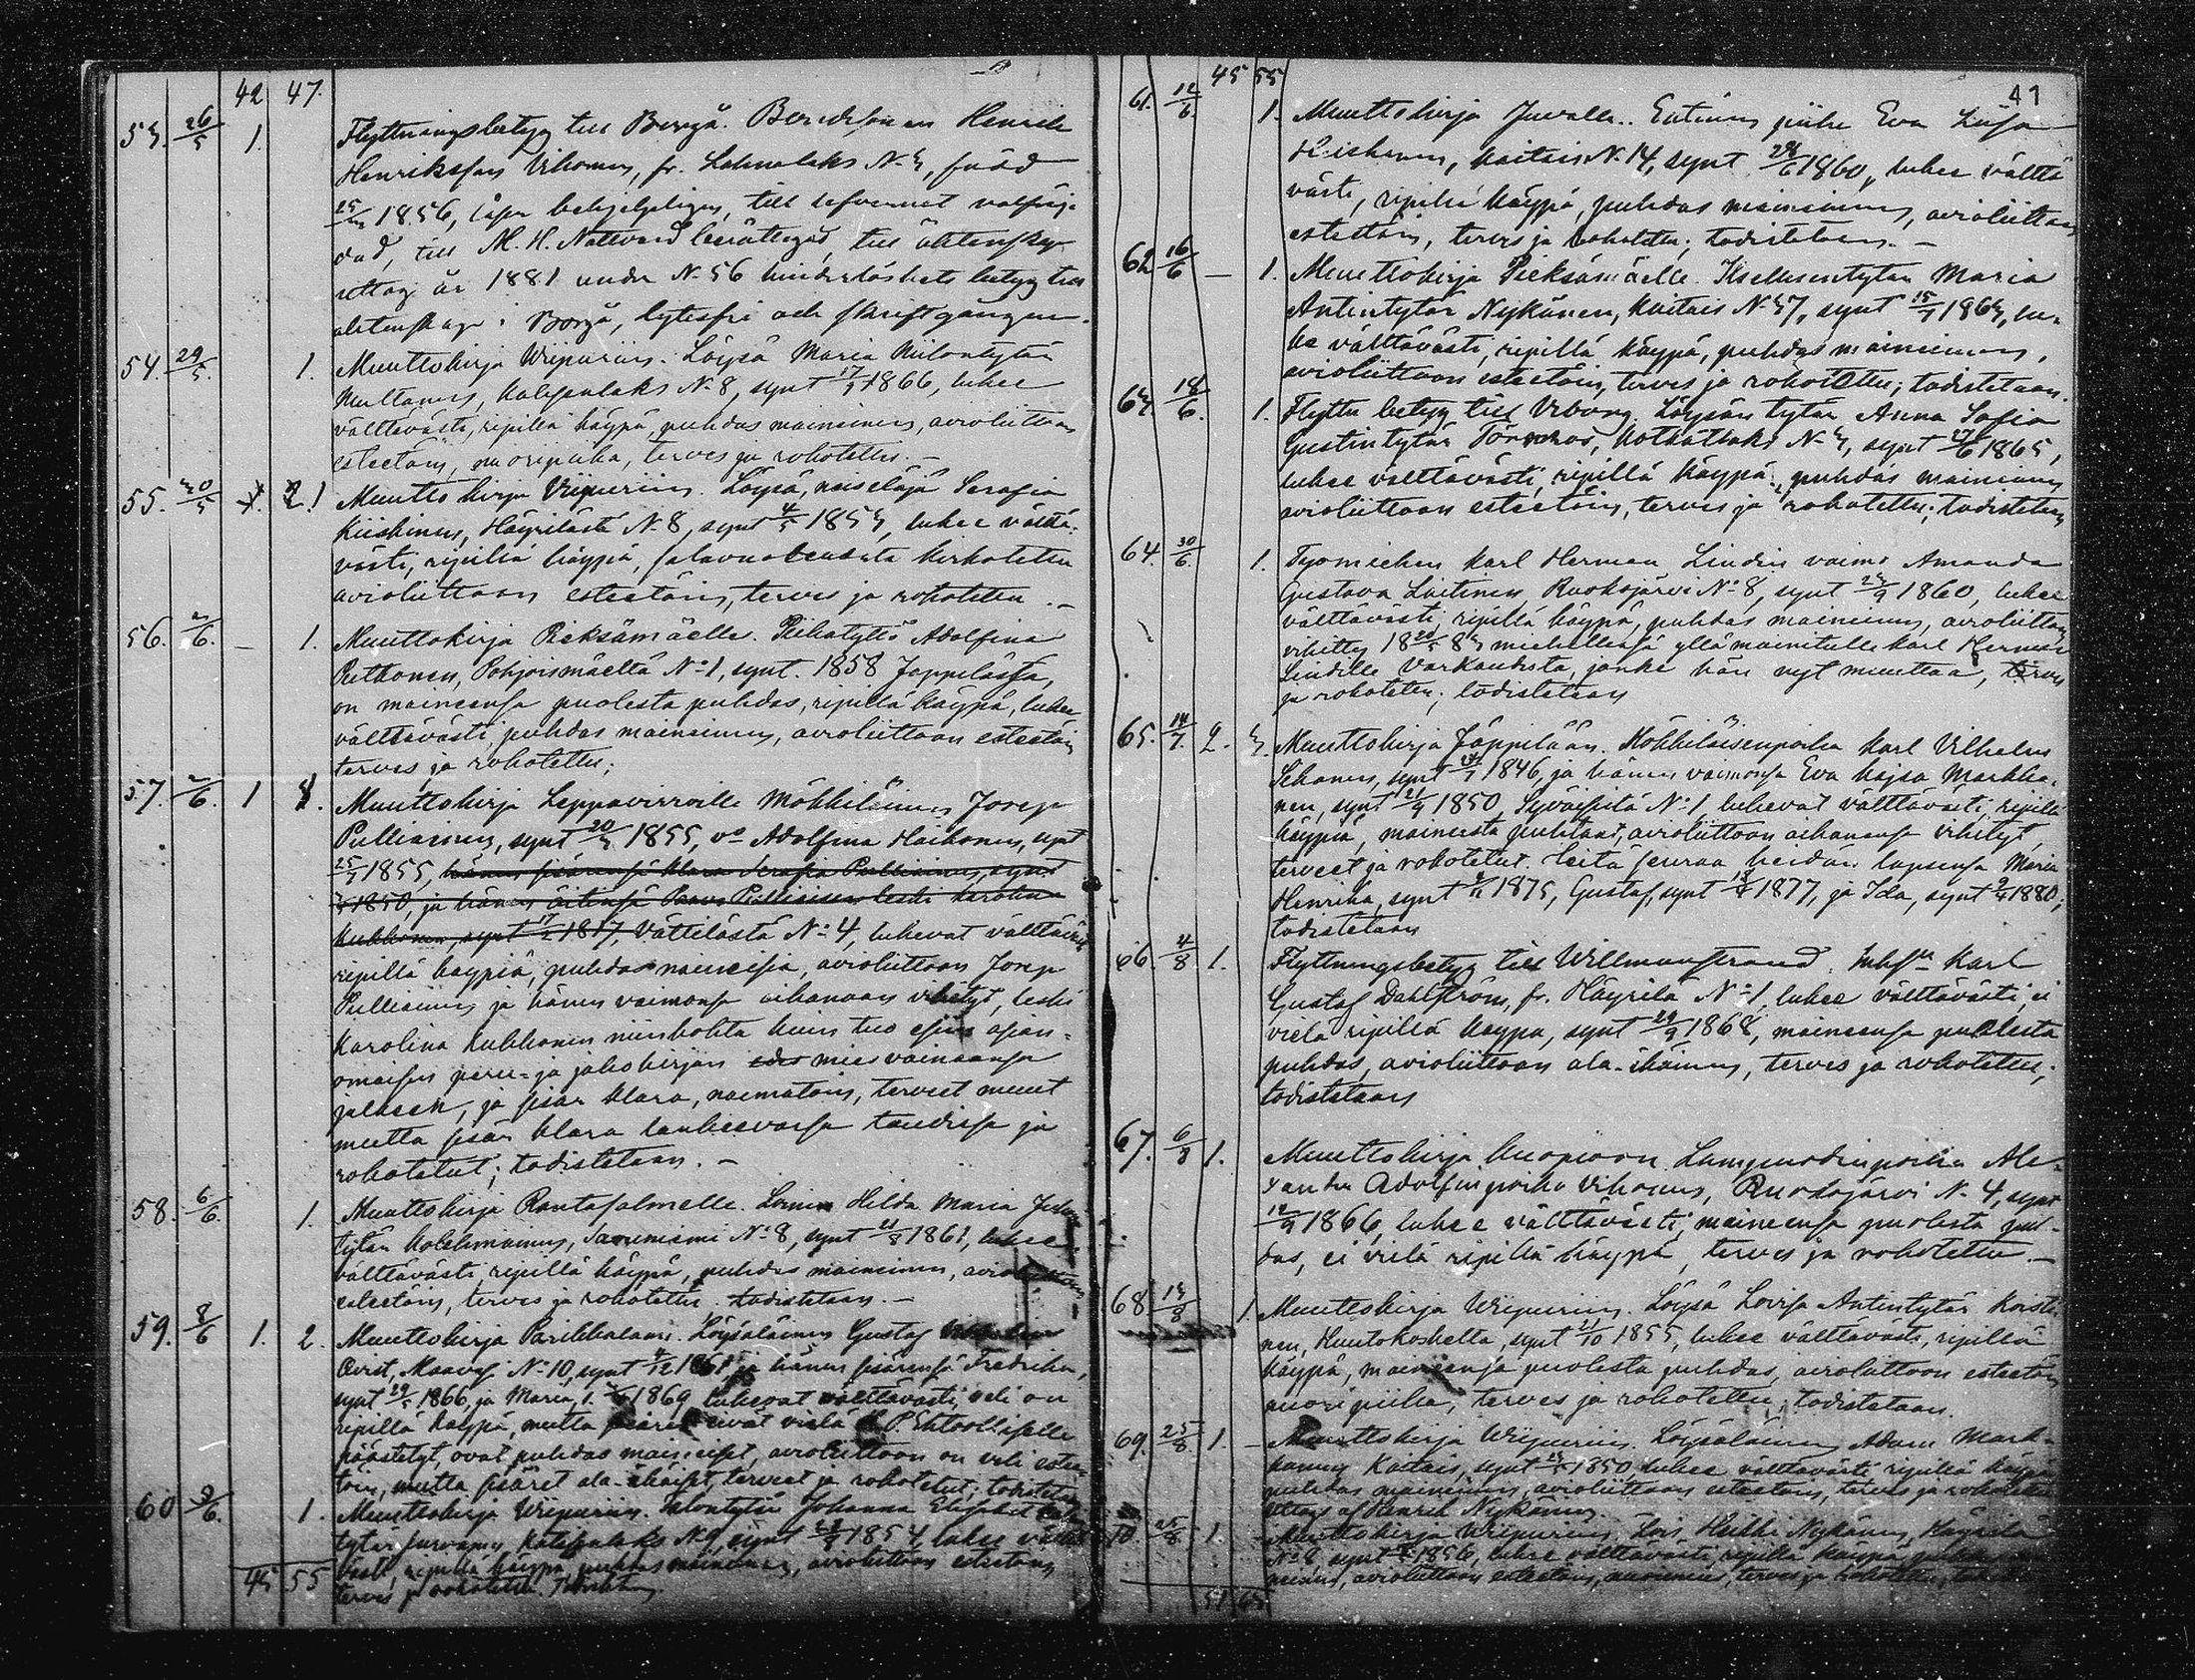 42 47
53. 26/5 1. Flyttningsbetyg till Borgå. Henrik
Henriksson Vihonen, fr. Lahnalaks No 3, född
25/ 1856, läser behjelpligen, till
till H. H. Nattvard berättigad, till äktenskap
år 1881 under No 56 hinderlöshets betyg till
äktenskap i Borgå, lytesfri och skriftgången.
54. 29/5. 1. Muuttokirja Wiipuriin. Löysä Maria Niilontytär
Multanen, No 8, synt 17/ 1866, lukee
välttävästi, ripillä käypä, puhdas maineinen, avioliittoon
esteetöin, nuori piika, terves ja rokotettu. —
55. 30/5 2.1 Muuttokirja Viipuriin. Löysä, naiseläjä Serafia
Kiiskinen, Häyrilästä No 8, synt 4/5 1853, lukee vältä-
västi, ripillä käypä, salavuoteudesta kirkotettu
avioliittoon esteetöin, terves ja rokotettu. —
56. 2/6. — 1. Muuttokirja Pieksämäelle. Piikatyttö Adolfina
Putkonen, Pohjoismäeltä No 1, synt. 1858 Jäppilässä,
on maineensa puolesta puhdas, ripillä käypä, lukee
välttävästi, puhdas maineinen, avioliittoon esteetöin
terves ja rokotettu;
57. 2/6. 1 1. Muuttokirja Leppävirroille Mökkiläinen Josep
Pulliainen, synt 20/3 1855, vo Adolfina Haikonen, synt
25/ 1855, hänen sisärensä Klara Serafia Pulliainen, synt
1850, ja hänen äitinsä Paavo Pulliaisen leski Karolina
Kukkonen, synt 17/2 1817, Vättilästä No 4, lukevat välttäväst
ripillä käypiä, puhdas maineisia, avioliittoon Josep
Pulliainen ja hänen vaimonsa aikanaan vihityt, leski
Karolina Kukkonen niinkohta kuin tuo esiin asian-
omaisen peru- ja jakokirjan mies vainaansa
jälkeen, ja sisar Klara, naimatoin, terveet muut
mutta sisär Klara taudissa ja
rokotetut; todistetaan. —
58. 6/6. 1. Muuttokirja Rantasalmelle. Hilda Maria
tytär Kolehmainen, No 8, synt /8 1861, lukee
välttävästi, ripillä käypä, puhdas maineinen,
esteetöin, terves ja rokotettu. todistetaan. —
59. 8/6 1. 2. Muuttokirja Parikkalaan. Löysäläinen Gustaf
Avist, Maavesi No 10, synt 4/12 1861, ja hänen sisärensä Fredrika,
synt 29/5 1866, ja Maria, s. 1869 lukevat välttävästi, veli on
ripillä käypä, mutta eivät vielä H. P. Ehtoollisselle
päästetyt, ovat puhdas maineiset, avioliittoon on veli estee-
töin, mutta sisäret ala-ikäiset, terveet ja rokotetut; todistetaan
60 9/6. 1. Muuttokirja Wiipuriin. Johanna Elisabet
tytär Survonen, No 9, synt 1854, lukee vältä
västi, ripillä käypä, puhdas maineinen, avioliittoon esteetöin
terves ja rokotettu.
45 55
45 55 41
61. 12/6. 1. Muuttokirja Juvalle. Entinen piika Eva Liisa
Kaitais No 14, synt 24/6 1860, lukee vältä
västi, ripillä käypä, puhdas maineinen, avioliittoon
esteetöin, terves ja rokotettu; todistetaan. —
62 16/6 — 1. Muuttokirja Pieksämäelle. Itsellisentytär Maria
Antintytär Nykänen, Kaitais No 37, synt 15/7 1863, lu-
kee välttävästi, ripillä käypä, puhdas maineinen,
avioliittoon esteetöin, terves ja rokotettu; todistetaan.
63. 18/6. 1. Flyttn betyg till Viborg. Löysän tytär Anna Sofia
Gustintytär No 3, synt 27/6 1865,
lukee välttävästi, ripillä käypä, puhdas maineinen
avioliittoon esteetöin, terves ja rokotettu; todistetaan
64. 30/6. 1. Työmiehen Karl Herman Lindin vaimo Amanda
Gustava Laitinen, Ruokojärvi No 8, synt 23/9 1860, lukee
välttävästi, ripillä käypä, puhdas maineinen, avioliittoon
vihitty 18 20/5 83 miehellensä yllä mainitulle Karl Herman
Lindille Varkaudesta, jonka hän nyt muuttaa, terves
ja rokotettu; todistetaan
65. 14/7. 2. 3. Muuttokirja Jäppilään. Mökkiläisenpoika Karl Vilhelm
synt 27/7 1846, ja hänen vaimonsa Eva Kajsa Markka-
nen, synt 21/9 1850, Syväisistä No 1, lukevat välttävästi, ripillä
käypiä, maineesta puhtaat, avioliittoon aikanansa vihityt,
terveet ja rokotetut. Heitä seuraa heidän lapsensa Maria
Henrika, synt 1875, Gustaf, synt 18/4 1877, ja Ida, synt 9/4 1880;
todistetaan
66. 4/8 1. Flyttningsbetyg till Willmanstrand. Karl
Gustaf Dahlström, fr. Häyrilä No 1, lukee välttävästi, ei
vielä ripillä käypä, synt 29/9 1868, maineensa puolesta
puhdas, avioliittoon ala-ikäinen, terves ja rokotettu;
todistetaan
67. 6/8 1. Muuttokirja Kuopioon. Lampuodinpoika Ale-
xander Adolfinpoika Vihonen, Ruokojärvi No 4, synt
12/9 1866, lukee välttävästi, maineensa puolesta puh-
das, ei vielä ripillä käypä, terves ja rokotettu. —
68 13/8 1. Muuttokirja Wiipuriin. Löysä Lovisa Antintytär Koisti-
nen, Huutokoskelta, synt 21/10 1855, lukee välttävästi, ripillä
käypä, maineensa puolesta puhdas, avioliittoon esteetöin
nuori piika, terves ja rokotettu; todistetaan.
69. 25/8. 1. — Muuttokirja Wiipuriin. Löysäläinen Adam Mark-
kanen Kaitais, synt 1850, lukee välttävästi ripillä käypä
puhdas maineinen, avioliittoon esteetöin, terves ja rokotettu
af Henrik Nykänen.
70. 25/8 1. — Muuttokirja Wiipuriin, Heikki Nykänen, Häyrilä
No 8, synt 1856, lukee välttävästi ripillä käypä,
avioliittoon esteetöin, nuorimies, terves ja rokotettu,
51 65